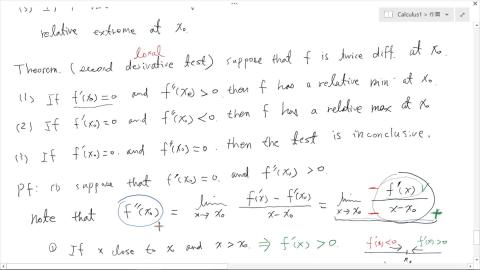 Calculus1 > 作圖
relative extreme at x₀.
local
Theorem. (second derivative test) suppose that f is twice diff. at x₀.
(1) If f'(x₀)=0 and f''(x₀)>0. then f has a relative min at x₀.
(2) If f'(x₀)=0 and f''(x₀)<0. then f has a relative max at x₀
(3) If f'(x₀)=0. and f''(x₀)=0. then the test is inconclusive.
pf: (1) suppose that f'(x₀)=0. and f''(x₀) >0.
note that f''(x₀) = lim x→x₀ f'(x) - f'(x₀) / x-x₀ = lim x→x₀ f'(x) / x-x₀
+ − − +
① If x close to x and x>x₀. ⇒ f'(x) >0. f'(x)<0 f'(x)>0
x₀